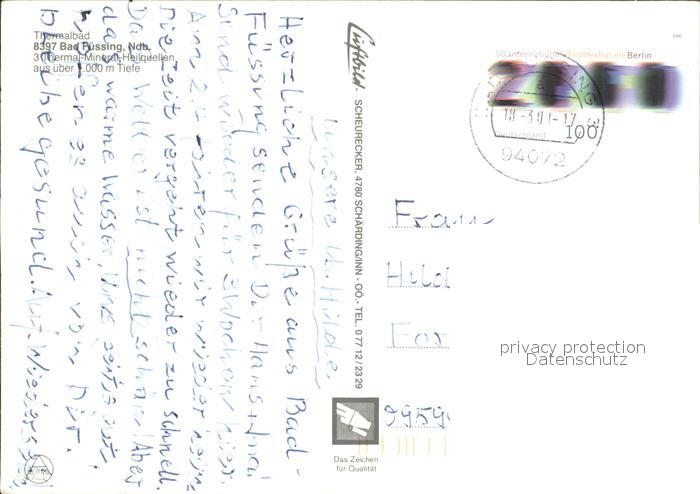 Thermalbad
8397 Bad Füssing, Ndb.
3 Thermal-Mineral-Heilquellen
aus über 1000 m Tiefe
Unsere lb. Hilde,
Herzliche Grüße aus Bad-
Füssing senden Dir Hans +
Sind wieder für 3 Wochen hier.
Am 24. wir wieder heim,
Die Zeit vergeht wieder zu schnell.
Das Wetter ist nicht schön! Aber
das warme Wasser, uns gut,
hoffen es auch von Dir.
Bleibe gesund. Auf Wiedersehen
Luftbild · SCHEURECKER, 4780 SCHÄRDING/INN - OÖ. - TEL. 0 77 12 / 23 29
Das Zeichen
für Qualität
50. Internationale Filmfestspiele Berlin
Deutschland
100
18.-3.01-17
94072
Frau
Hild
For
9959
privacy protection
Datenschutz